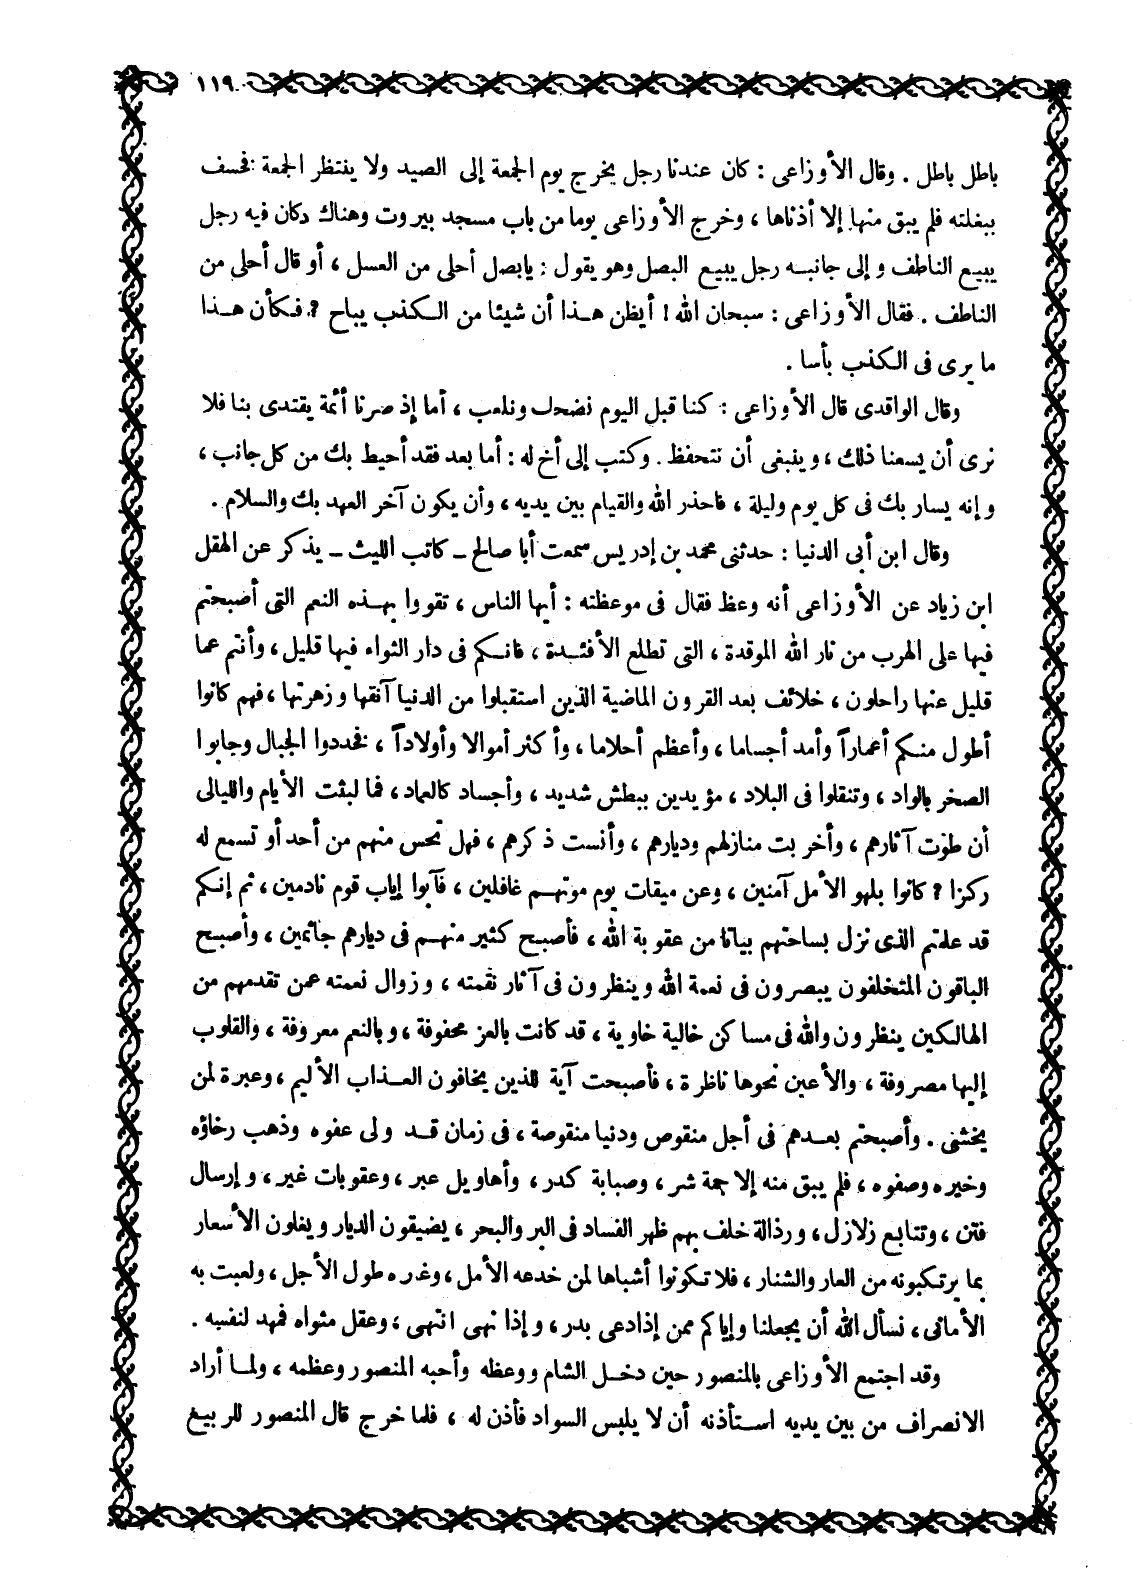 ١١٩
باطل باطل . وقال الأوزاعى : كان عندنا رجل يخرج يوم الجمعة إلى الصيد ولا ينتظر الجمعة فخسف
ببغلته فلم يبق منها إلا أذناها ، وخرج الأوزاعى يوما من باب مسجد بيروت وهناك دكان فيه رجل
يبيع الناطف و إلى جانبه رجل يبيع البصل وهو يقول : يابصل أحلى من العسل ، أو قال أحلى من
الناطف . فقال الأوزاعى : سبحان الله ! أيظن هذا أن شيئا من الكذب يباح ? فكأن هذا
ما يرى فى الكذب بأسا .
وقال الواقدى قال الأوزاعى : كنا قبل اليوم نضحك ونلعب ، أما إذ صرنا أئمة يقتدى بنا فلا
نرى أن يسعنا ذلك ، وينبغى أن نتحفظ . وكتب إلى أخ له : أما بعد فقد أحيط بك من كل جانب ،
و إنه يسار بك فى كل يوم وليلة ، فاحذر الله والقيام بين يديه ، وأن يكون آخر العهد بك والسلام .
وقال ابن أبى الدنيا : حدثنى محمد بن إدريس سمعت أبا صالح ـ كاتب الليث ـ يذكر عن الهقل
ابن زياد عن الأوزاعى أنه وعظ فقال فى موعظته : أيها الناس ، تقووا بهذه النعم التى أصبحتم
فيها على الهرب من نار الله الموقدة ، التى تطلع الأفئدة ، فانكم فى دار الثواء فيها قليل ، وأنتم عما
قليل عنها راحلون ، خلائف بعد القرون الماضية الذين استقبلوا من الدنيا آنقها وزهرتها ، فهم كانوا
أطول منكم أعماراً وأمد أجساما ، وأعظم أحلاما ، وأكثر أموالا وأولاداً ، فخددوا الجبال وجابوا
الصخر بالواد ، وتنقلوا فى البلاد ، مؤيدين ببطش شديد ، وأجساد كالعماد ، فما لبثت الأيام والليالى
أن طوت آثارهم ، وأخربت منازلهم وديارهم ، وأنست ذكرهم ، فهل تحس منهم من أحد أو تسمع له
ركزا ? كانوا بلهو الأمل آمنين ، وعن ميقات يوم موتهم غافلين ، فآبوا إياب قوم نادمين ، ثم إنكم
قد علمتم الذى نزل بساحتهم بياتا من عقوبة الله ، فأصبح كثير منهم فى ديارهم جاثمين ، وأصبح
الباقون المتخلفون يبصرون فى نعمة الله وينظرون فى آثار نقمته ، وزوال نعمته عمن تقدمهم من
الهالكين ينظرون والله فى مساكن خالية خاوية ، قد كانت بالعز محفوفة ، وبالنعم معروفة ، والقلوب
إليها مصروفة ، والأعين نحوها ناظرة ، فأصبحت آية للذين يخافون العذاب الأليم ، وعبرة لمن
يخشى . وأصبحتم بعدهم فى أجل منقوص ودنيا منقوصة ، فى زمان قد ولى عفوه وذهب رخاؤه
وخيره وصفوه ، فلم يبق منه إلا جمة شر ، وصبابة كدر ، وأهاويل عبر ، وعقوبات غير ، و إرسال
فتن ، وتتابع زلازل ، ورذالة خلف بهم ظهر الفساد فى البر والبحر ، يضيقون الديار ويغلون الأسعار
بما يرتكبونه من العار والشنار ، فلا تكونوا أشباها لمن خدعه الأمل ، وغره طول الأجل ، ولعبت به
الأمانى ، نسأل الله أن يجعلنا وإياكم ممن إذا دعى بدر ، و إذا نهى انتهى ، وعقل مثواه فمهد لنفسه .
وقد اجتمع الأوزاعى بالمنصور حين دخل الشام ووعظه وأحبه المنصور وعظمه ، ولما أراد
الانصراف من بين يديه استأذنه أن لا يلبس السواد فأذن له ، فلما خرج قال المنصور للربيع